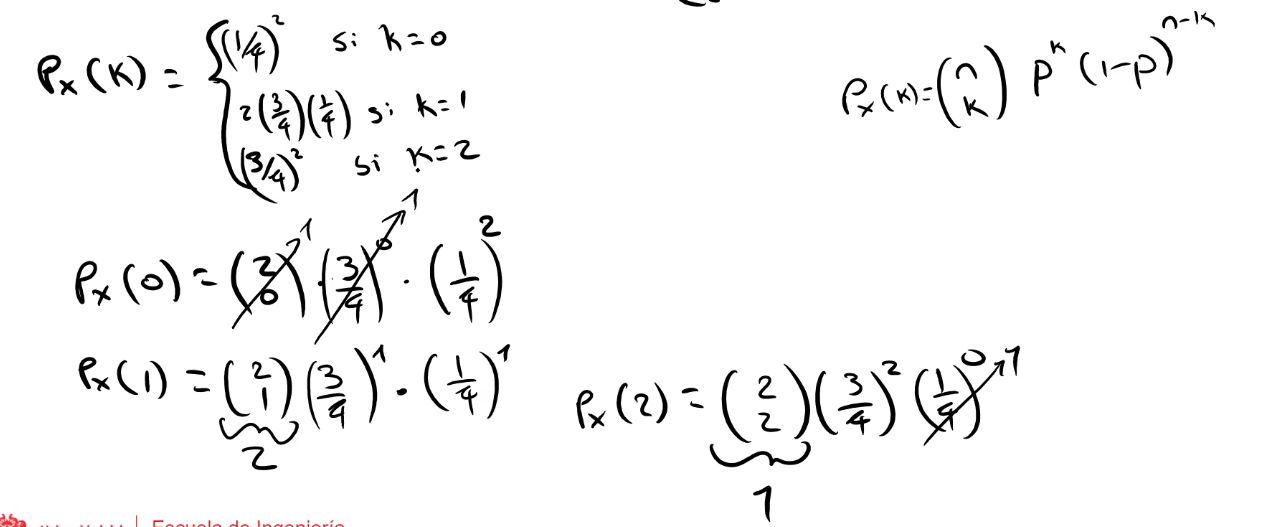 Pₓ(k) = { (1/4)² si k=0
2(3/4)(1/4) si k=1
(3/4)² si k=2
Pₓ(k)=(n k) p^k (1-p)^(n-k)
Pₓ(0) = (2 0)↗1 · (3/4)^0↗1 · (1/4)^2
Pₓ(1) = (2 1) (3/4)^1 · (1/4)^1
2
Pₓ(2) = (2 2) (3/4)^2 (1/4)^0↗1
1
Escuela de Ingeniería